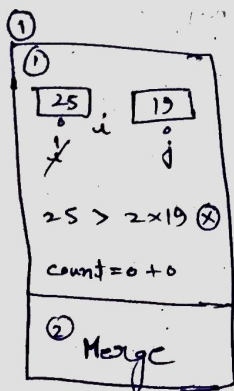 ①
①
25 19
0 i 0
i j
25 > 2×19 ⊗
count = 0 + 0
②
Merge